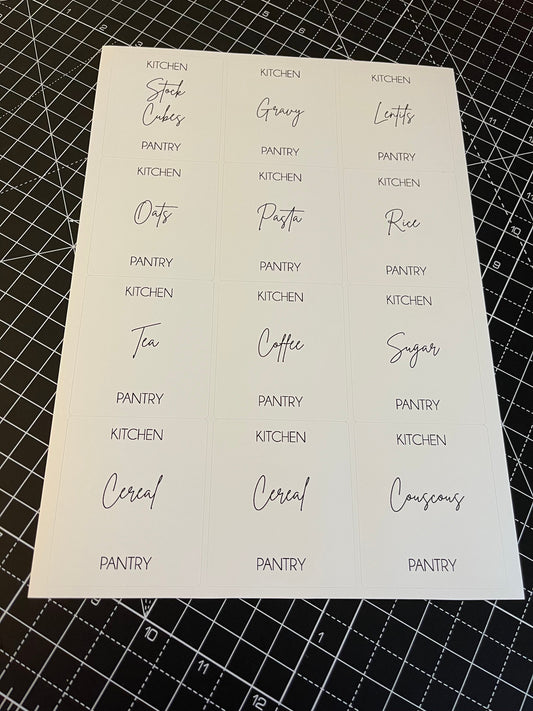 KITCHEN
Stock
Cubes
PANTRY
KITCHEN
Gravy
PANTRY
KITCHEN
Lentils
PANTRY
KITCHEN
Oats
PANTRY
KITCHEN
Pasta
PANTRY
KITCHEN
Rice
PANTRY
KITCHEN
Tea
PANTRY
KITCHEN
Coffee
PANTRY
KITCHEN
Sugar
PANTRY
KITCHEN
Cereal
PANTRY
KITCHEN
Cereal
PANTRY
KITCHEN
Couscous
PANTRY
11
10
9
10
11
12
1